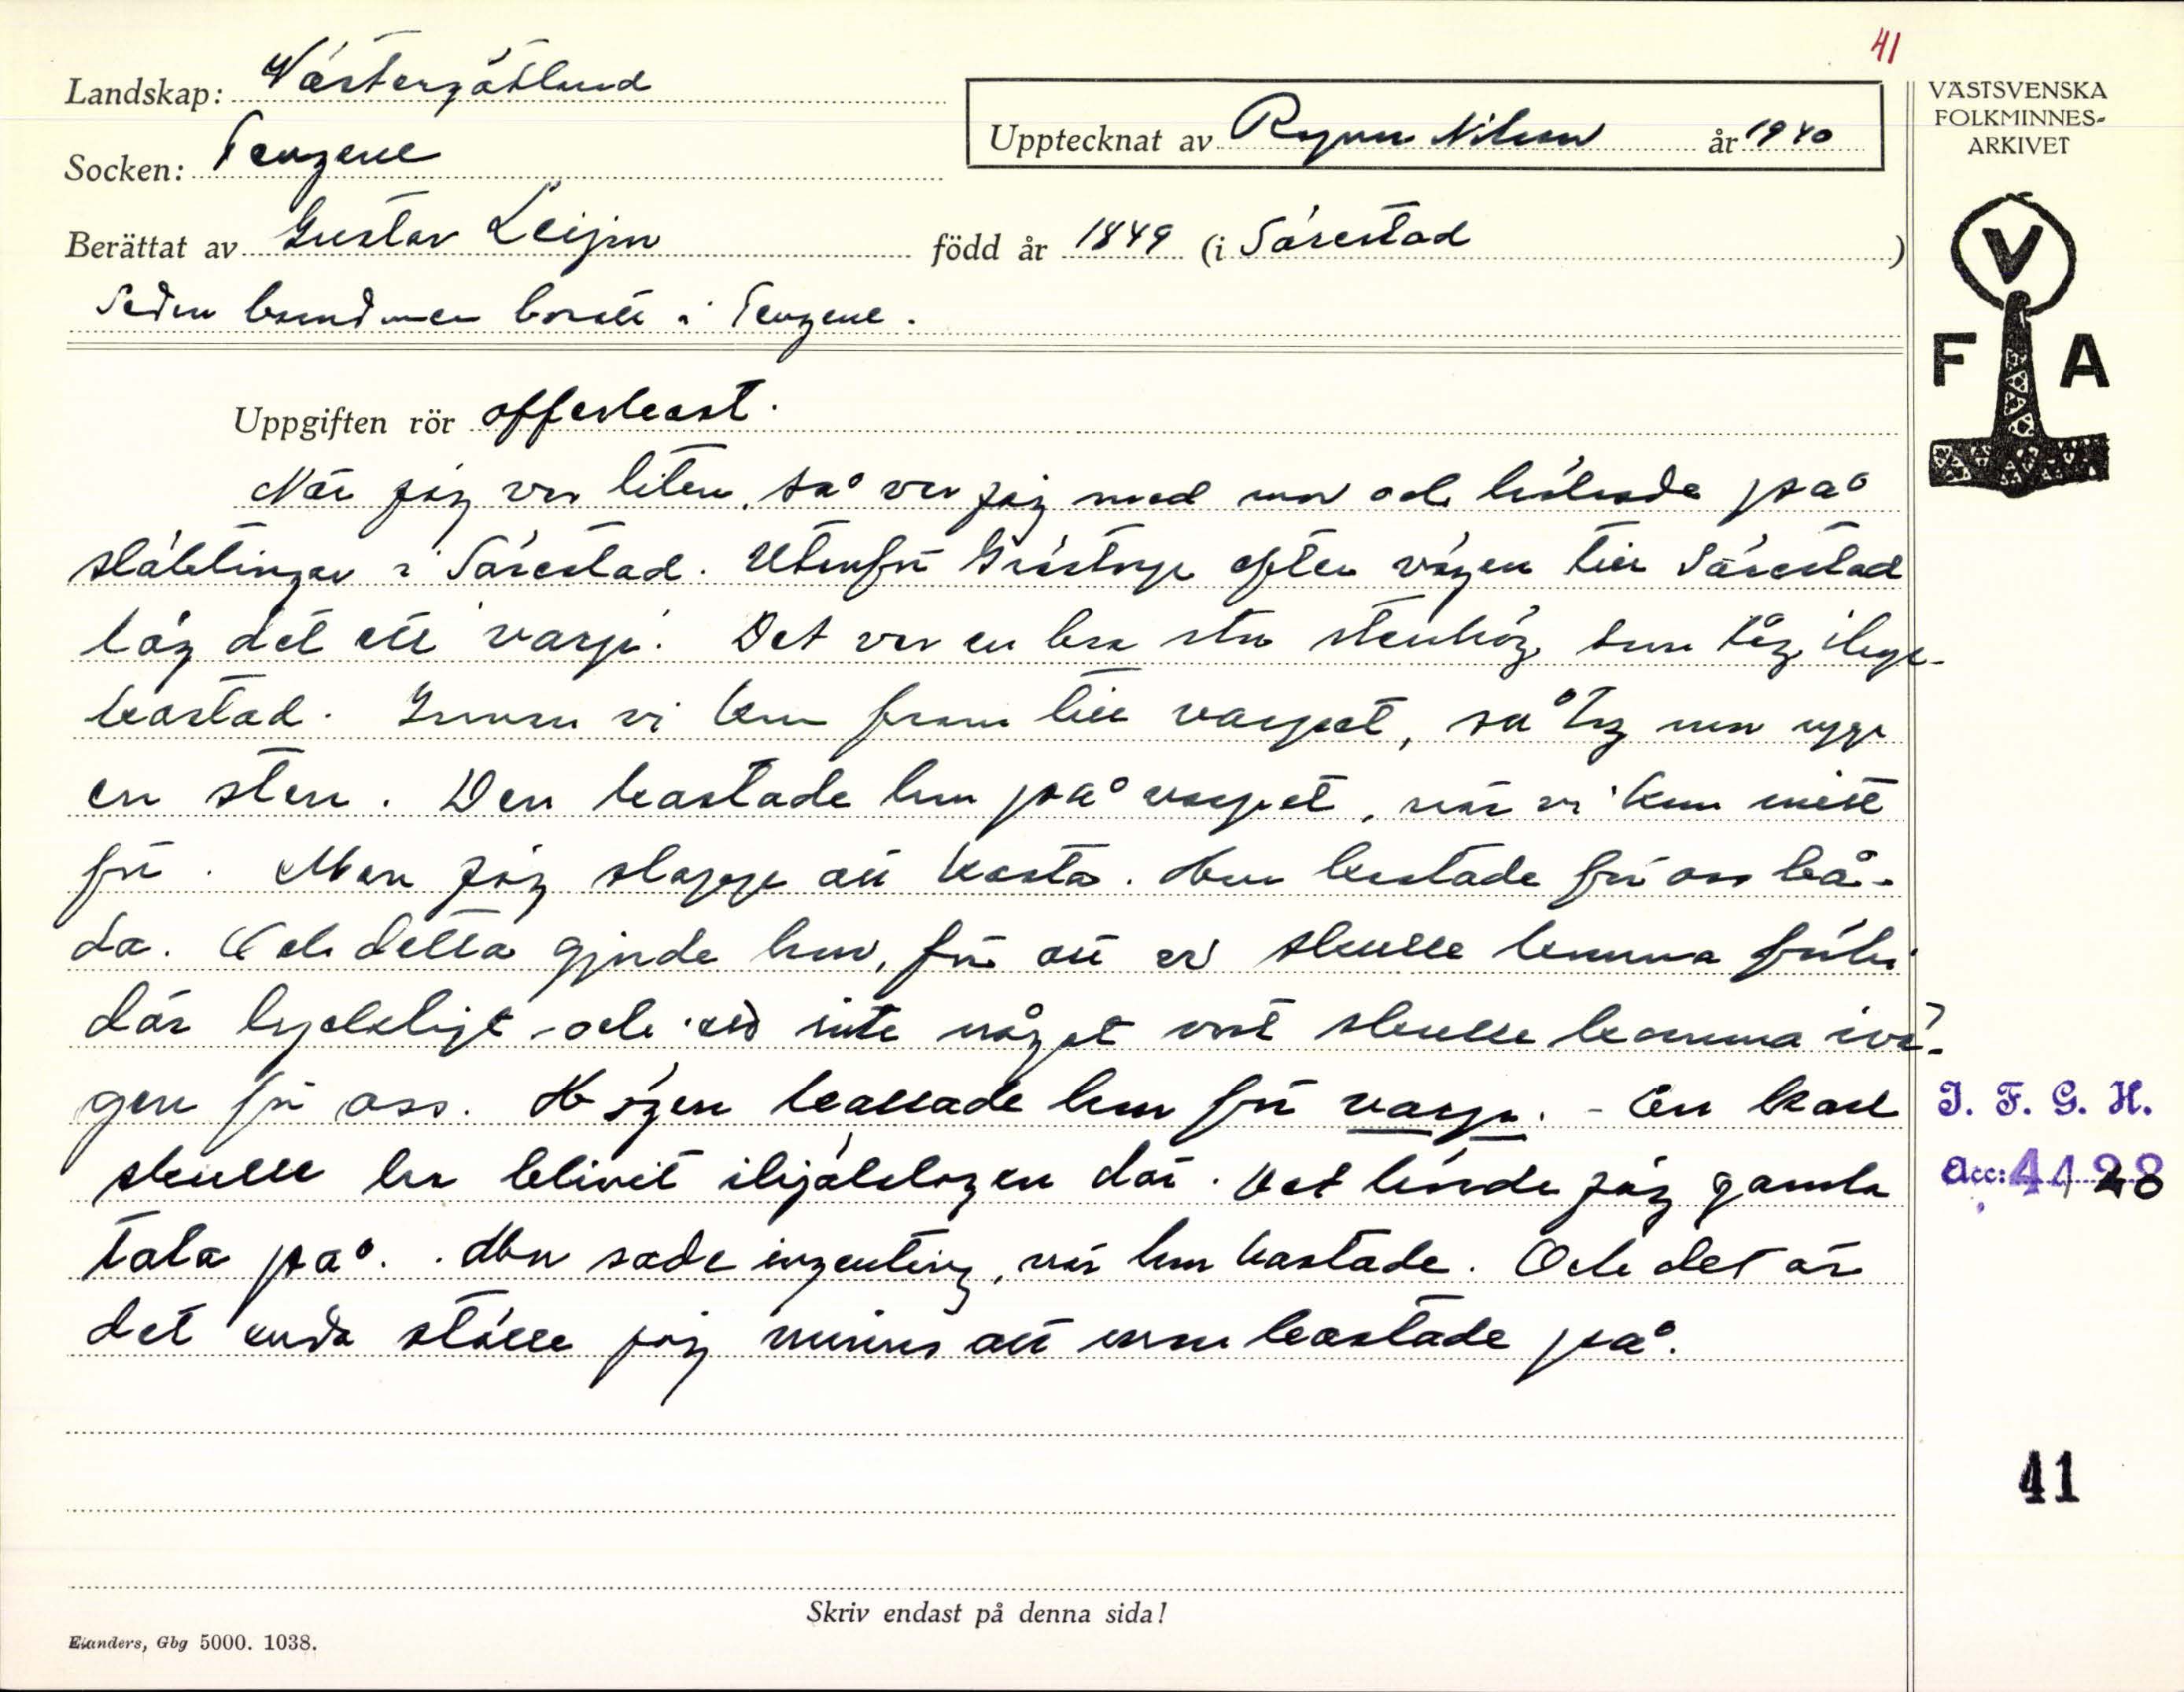 41
Landskap: Västergötland
VÄSTSVENSKA
FOLKMINNES-
ARKIVET
Upptecknat av Ragnar Nilsson år 1940
Socken: Tengene
Berättat av Gustav Leijon född år 1849 (i Särestad )
Sedan bonde boratt i Tengene.
V
F A
Uppgiften rör offerkast.
När jag var liten, så var jag med mor och hälsade på
släktingar i Särestad. Utanför Grästorp efter vägen till Särestad
låg det ett varp. Det var en bra stor stenhög, som låg ihop-
kastad. Innan vi kom fram till varpet, så tog mor upp
en sten. Den kastade hon på varpet, när vi kom mitt
för. Men jag slapp att kasta. Hon kastade för oss bå-
da. Och detta gjorde hon, för att vi skulle komma förbi
där lyckligt och att inte något ont skulle komma i vä-
gen för oss. Högen kallade hon för varp. - En karl
skulle ha blivit ihjälslagen där. Det hörde jag gamla
tala på. Hon sade ingenting, när hon kastade. Och det är
det enda ställe jag minns att mor kastade på.
I. F. G. H.
Acc: 4428
41
Skriv endast på denna sida!
Elanders, Gbg 5000. 1038.